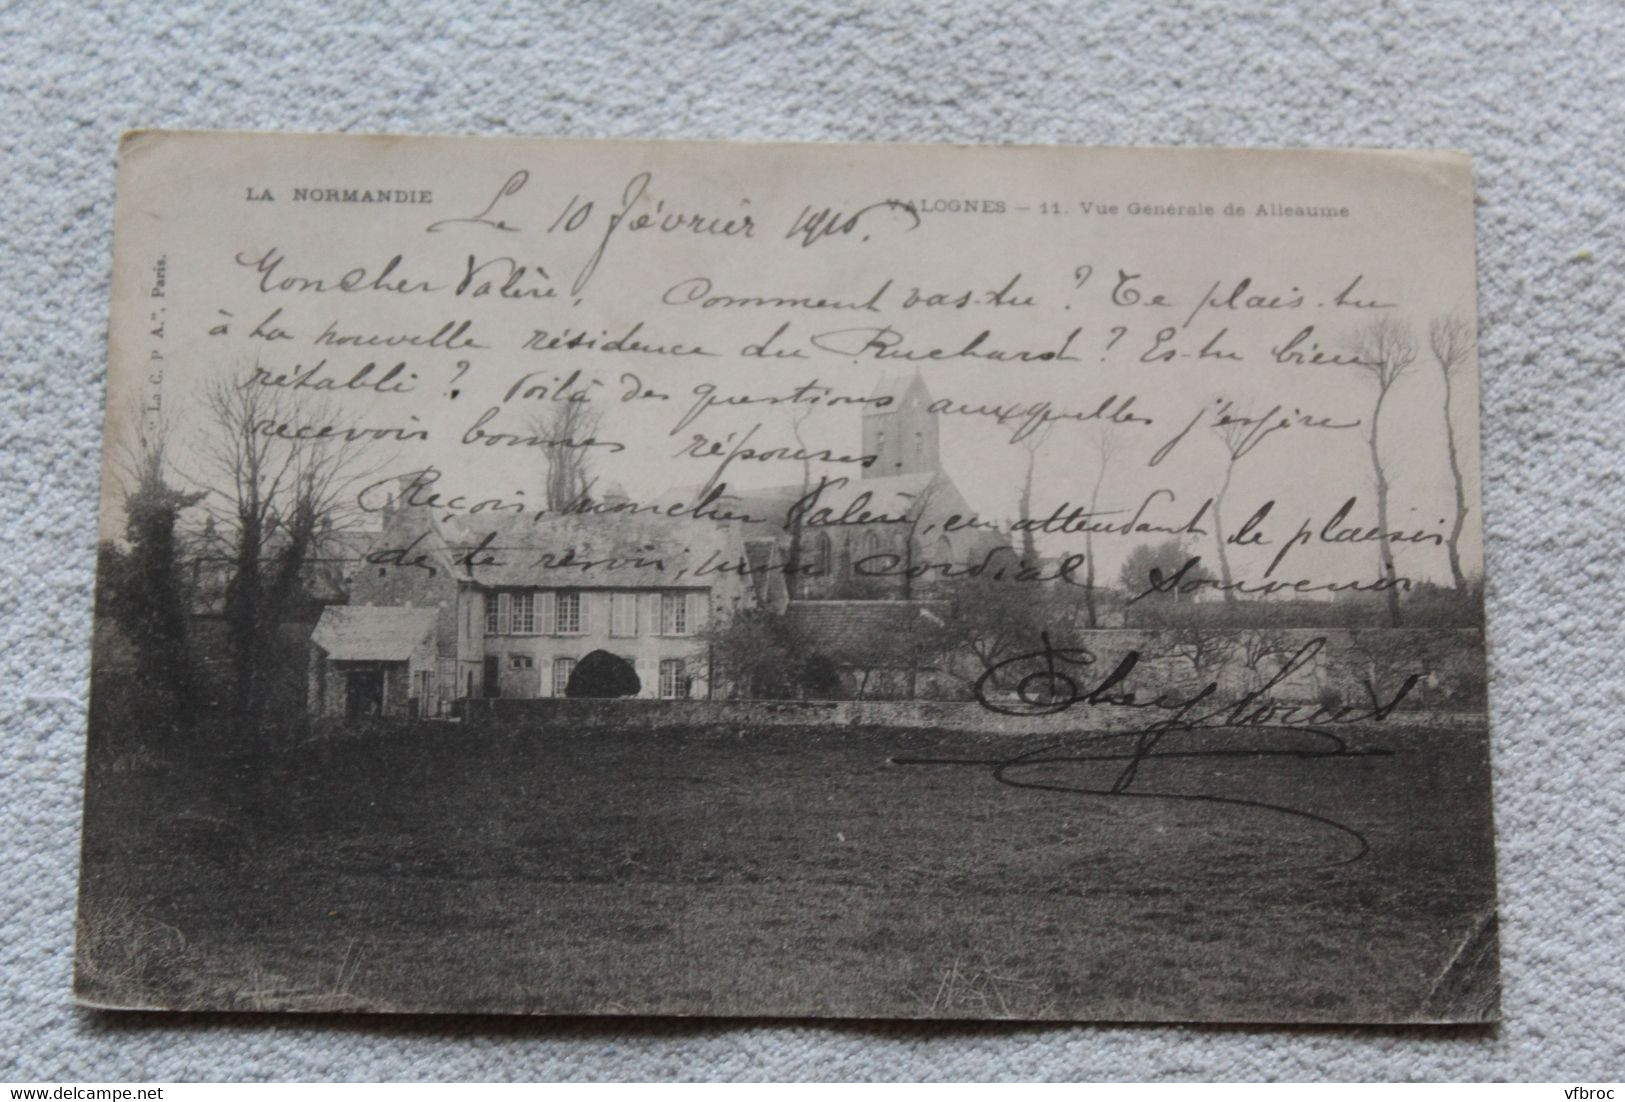 LA NORMANDIE
VALOGNES – 11. Vue Générale de Alleaume
" La C. P. A.", Paris.
Le 10 Février 1916.
Mon cher Valère, Comment vas-tu ? Te plais-tu
à ta nouvelle résidence du Ruchard ? Es-tu bien
rétabli ? Voilà des questions auxquelles j'espère
recevoir bonnes réponses.
Reçois, mon cher Valère, en attendant le plaisir
de te revoir, mon cordial souvenir
delcampe.net
vfbroc